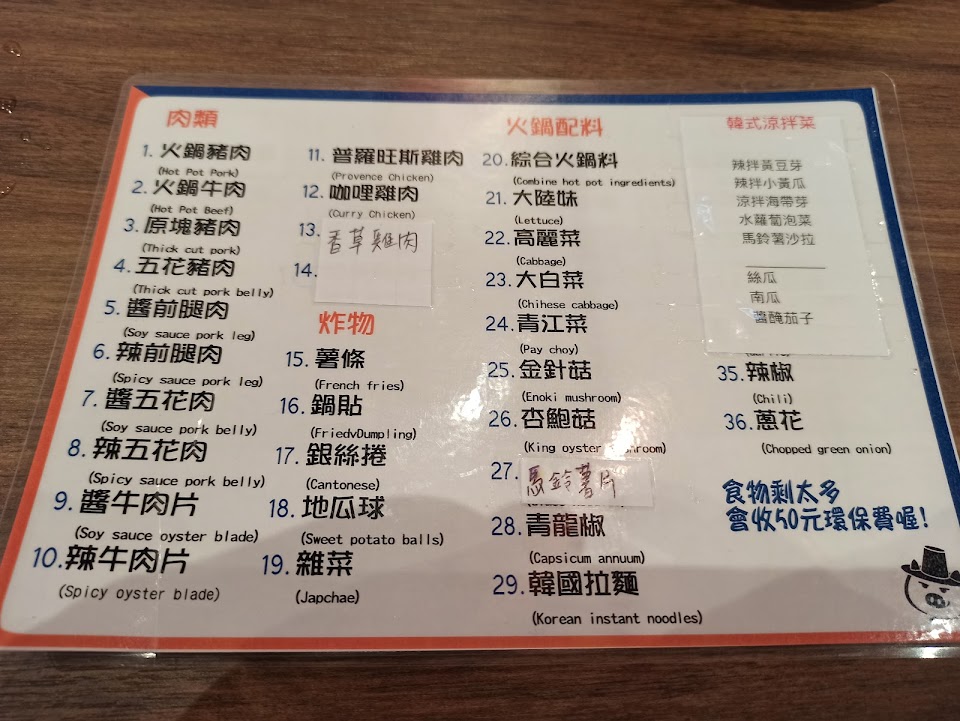 肉類
1. 火鍋豬肉
(Hot Pot Pork)
2. 火鍋牛肉
(Hot Pot Beef)
3. 原塊豬肉
(Thick cut pork)
4. 五花豬肉
(Thick cut pork belly)
5. 醬前腿肉
(Soy sauce pork leg)
6. 辣前腿肉
(Spicy sauce pork leg)
7. 醬五花肉
(Soy sauce pork belly)
8. 辣五花肉
(Spicy sauce pork belly)
9. 醬牛肉片
(Soy sauce oyster blade)
10. 辣牛肉片
(Spicy oyster blade)
11. 普羅旺斯雞肉
(Provence Chicken)
12. 咖哩雞肉
(Curry Chicken)
13. 香草雞肉
14.
炸物
15. 薯條
(French fries)
16. 鍋貼
(FriedvDumpling)
17. 銀絲捲
(Cantonese)
18. 地瓜球
(Sweet potato balls)
19. 雜菜
(Japchae)
火鍋配料
20. 綜合火鍋料
(Combine hot pot ingredients)
21. 大陸妹
(Lettuce)
22. 高麗菜
(Cabbage)
23. 大白菜
(Chihese cabbage)
24. 青江菜
(Pay choy)
25. 金針菇
(Enoki mushroom)
26. 杏鮑菇
(King oyster mushroom)
27. 馬鈴薯片
28. 青龍椒
(Capsicum annuum)
29. 韓國拉麵
(Korean instant noodles)
韓式涼拌菜
辣拌黃豆芽
辣拌小黃瓜
涼拌海帶芽
水蘿蔔泡菜
馬鈴薯沙拉
絲瓜
南瓜
醬醃茄子
35. 辣椒
(Chili)
36. 蔥花
(Chopped green onion)
食物剩太多
會收50元環保費喔!